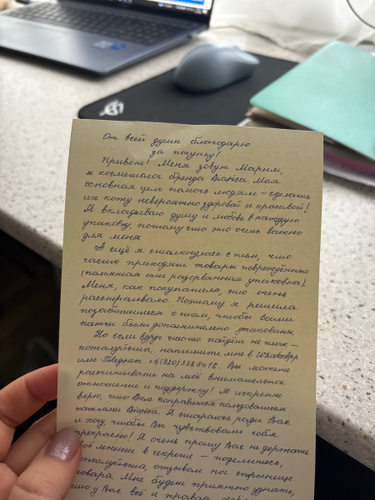 От всей души благодарю
за покупку!
Привет! Меня зовут Мария,
я косметолог бренда Моя
основная цель помочь людям – сделать
их кожу невероятно здоровой и красивой!
Я вкладываю душу и любовь в каждую
упаковку, потому что это очень важно
для меня
А ещё я столкнулась с тем, что
часто приходят товары повреждённых
(помятая или разорванная упаковка).
Меня, как покупателя, это очень
расстраивало. Поэтому я решила
позаботиться о том, чтобы ваши
патчи были дополнительно упакованы.
Но если вдруг что-то пойдёт не так –
пожалуйста, напишите мне в WhatsApp
или Telegram Вы можете
рассчитывать на моё внимательное
отношение и поддержку! Я искренне
верю, что Вам понравится пользоваться
патчами Я стараюсь ради Вас
и хочу, чтобы Вы чувствовали себя
прекрасно! Я очень прошу Вас не держать
своё мнение в секрете – поделитесь,
пожалуйста, отзывом на странице
товара. Мне будет приятно узнать,
что у Вас всё и правда